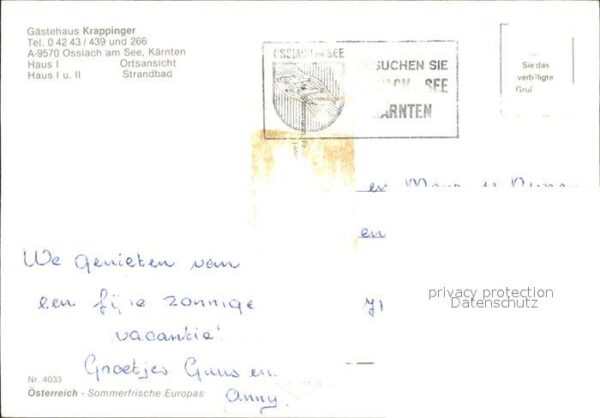 Gästehaus Krappinger
Tel. 0 42 43 / 439 und 266
A-9570 Ossiach am See, Kärnten
Haus I Ortsansicht
Haus I u. II Strandbad
OSSIACH SEE
SUCHEN SIE
SEE
KÄRNTEN
Sie das
verbilligte
en
We genieten van
een fijne zonnige
vacantie!
Groetjes Guus en
Anny.
privacy protection
Datenschutz
Nr. 4033
Österreich - Sommerfrische Europas